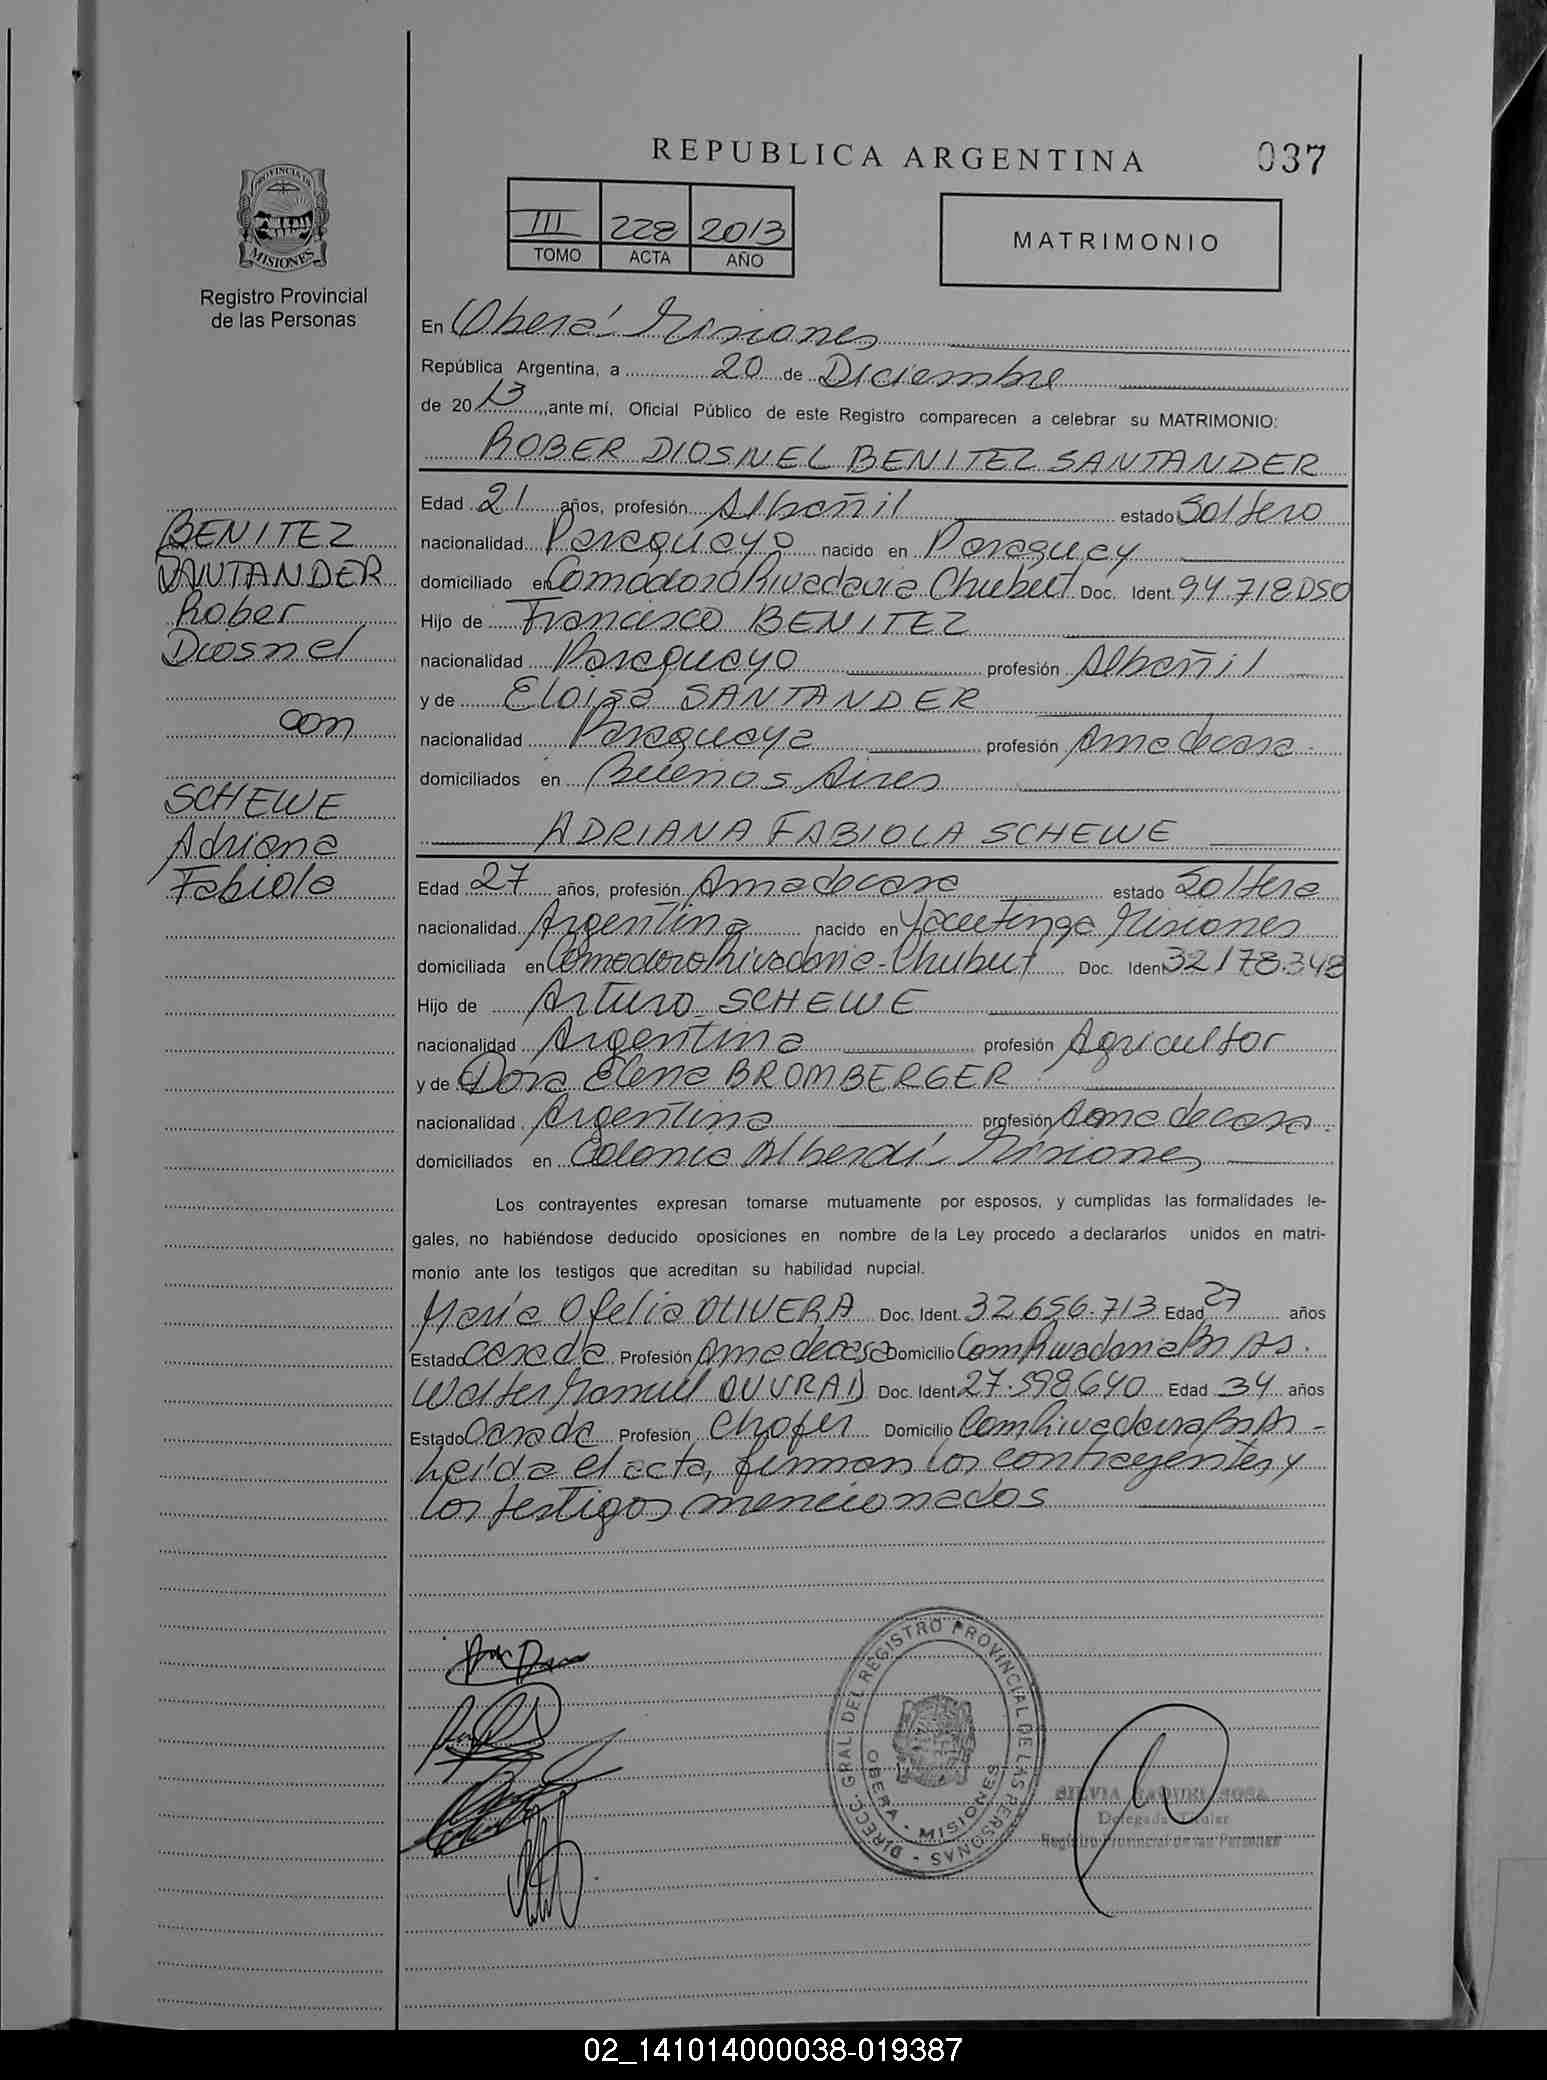 REPUBLICA ARGENTINA 037
PROVINCIA DE
MISIONES
Registro Provincial
de las Personas
III 228 2013
TOMO ACTA AÑO
MATRIMONIO
En Oberá Misiones
República Argentina, a 20 de Diciembre
de 2013, ante mí, Oficial Público de este Registro comparecen a celebrar su MATRIMONIO:
ROBER DIOSNEL BENITEZ SANTANDER
BENITEZ
SANTANDER
Rober
Diosnel
con
SCHEWE
Adriana
Fabiola
Edad 21 años, profesión Albañil estado Soltero
nacionalidad Paraguayo nacido en Paraguay
domiciliado en Comodoro Rivadavia Chubut Doc. Ident. 94.718.050
Hijo de Francisco BENITEZ
nacionalidad Paraguayo profesión Albañil
y de Eloisa SANTANDER
nacionalidad Paraguaya profesión Ama de casa.
domiciliados en Buenos Aires
ADRIANA FABIOLA SCHEWE
Edad 27 años, profesión Ama de casa estado Soltera
nacionalidad Argentina nacido en Yacutinga Misiones
domiciliada en Comodoro Rivadavia - Chubut Doc. Ident 32178.348
Hijo de Arturo SCHEWE
nacionalidad Argentina profesión Agricultor
y de Dora Elena BROMBERGER
nacionalidad Argentina profesión Ama de casa.
domiciliados en Colonia Alberdi Misiones
Los contrayentes expresan tomarse mutuamente por esposos, y cumplidas las formalidades le-
gales, no habiéndose deducido oposiciones en nombre de la Ley procedo a declararlos unidos en matri-
monio ante los testigos que acreditan su habilidad nupcial.
María Ofelia OLIVERA Doc. Ident. 32.656.713 Edad 27 años
Estado Casada Profesión Ama de casa Domicilio Com Rivadavia Bs As.
Walter Manuel DUVRAD Doc. Ident. 27.598.640 Edad 34 años
Estado Casado Profesión Chofer Domicilio Com Rivadavia Bs As -
Leída el acta, firman los contrayentes y
los testigos mencionados
DIRECC. GRAL. DEL REGISTRO PROVINCIAL DE LAS PERSONAS -
OBERA - MISIONES
SILVIA RAQUEL SOSA
Delegada Titular
Registro Provincial de las Personas
02_141014000038-019387